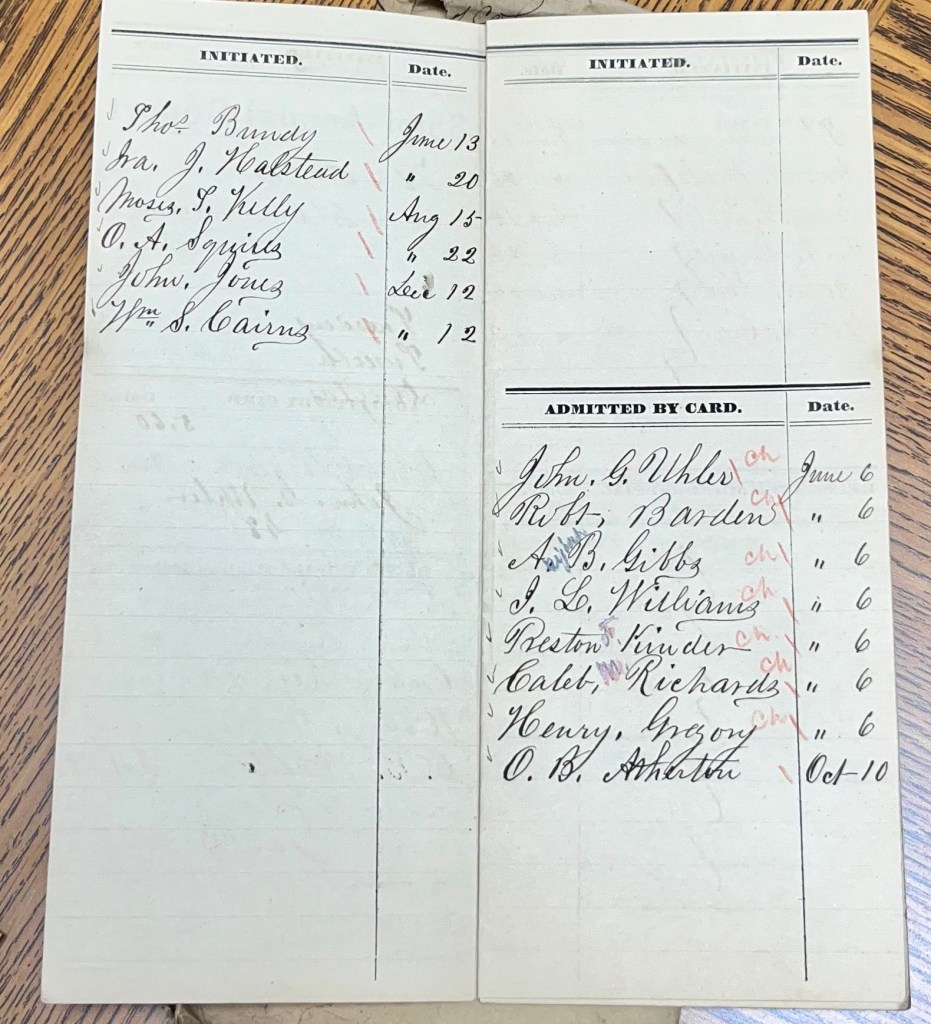 INITIATED. Date.
Thos. Bundy June 13
Ira. J. Halstead " 20
Moses. T. Kelly Aug 15
O. A. Squires " 22
John. Jones Dec 12
Wm. S. Cairns " 12
INITIATED. Date.
ADMITTED BY CARD. Date.
John. G. Uhler ch June 6
Robt. Barden ch " 6
A. B. Gibbs ch " 6
I. L. Williams ch " 6
Preston Kinder ch " 6
Caleb, M Richards ch " 6
Henry. Gregory ch " 6
O. B. Atherton Oct 10